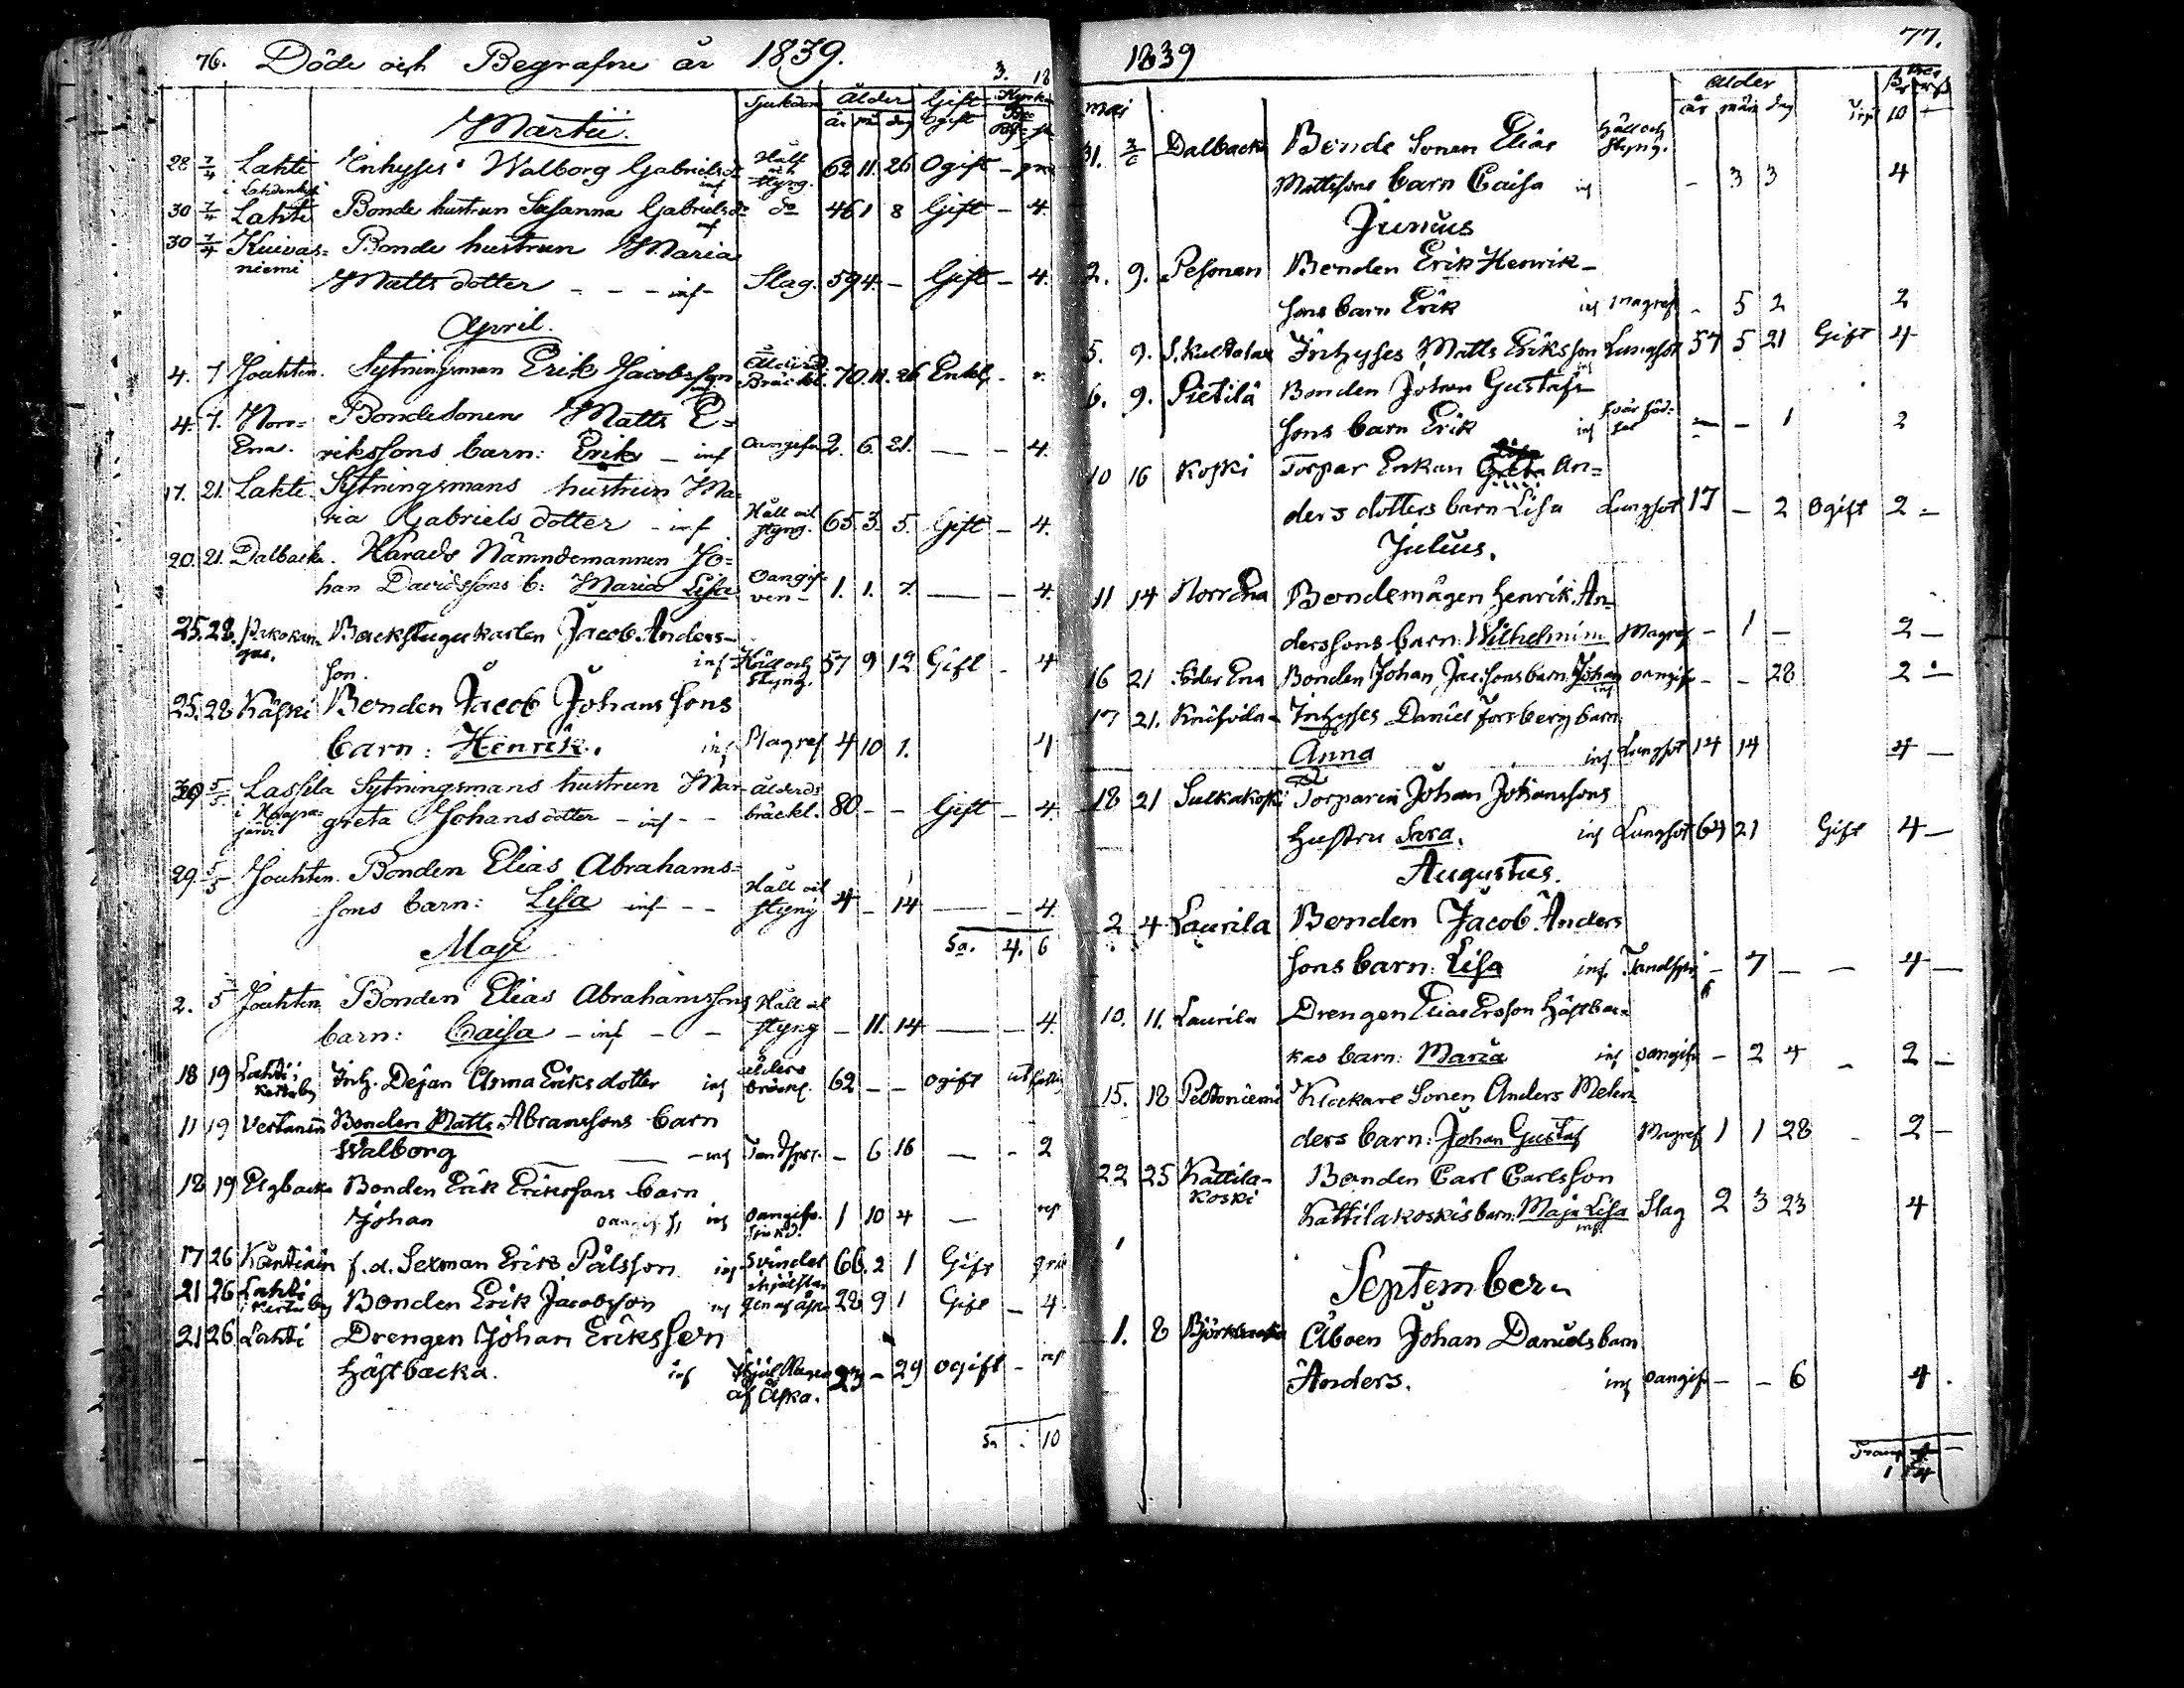 76. Döde och Begrafne år 1839.
Sjukdom Ålder Gift Ogift
år må dag
Martii.
28 7/4 Lahti Inhyses Walborg Gabrielsdr Håll och styng. 62 11. 26 Ogift -
i Lahdenkylä inf
30 7/4 Lahti Bonde hustrun Susanna Gabrielsdr do 46 1 8 Gift - 4.
inf
30 7/4 Kuivas= Bonde hustrun Maria
niemi Matts dotter - - - inf - Slag. 59 4. - Gift - 4.
April.
4. 7 Jouhten. Sytningsman Erik Jacobsson Ålderd. Bräckl. 70. 11. 26 Enkl. -
4. 7. Norr= Bondesonen Matts E=
Ena. rikssons barn: Erik - inf Oangifven 2. 6. 21. — - 4.
17. 21. Lahti Sytningsmans hustrun Ma=
ria Gabriels dotter - inf Håll och styng. 65. 3. 5. Gift - 4.
20. 21. Dalbacka. Härads Nämndemannen Jo=
han Davidssons b: Maria Lisa Oangif= ven - 1. 1. 7. — - 4.
25. 28. Backstugukarlen Jacob Anders-
gas. son. inf Håll och styng. 57 9 12 Gift - 4
25. 28 Käski Bonden Jacob Johanssons
barn: Henrik. inf Magref 4 10 1. 4
5/5. Lassila Sytningsmans hustrun Mar-
i Haapa= järvi greta Johansdotter - inf - - Ålderds bräckl. 80 - - Gift - 4.
29. 5/5 Jouhten. Bonden Elias Abrahams=
sons barn: Lisa inf - - Håll och styng 4 - 14 — - 4.
Sa. 4. 6
Maji
2. 5 Jouhten Bonden Elias Abrahamssons
barn: Caisa - inf - - Håll och styng - 11. 14 — - 4.
18 19 Lahti i Inh. Dejan Anna Eriks dotter inf ålders bräckl. 62 - - ogift
11 19 Vertanen Bonden Matts Abramsons barn
Walborg - inf Tandspr. - 6 16 — - 2
18 19 Elgbacka Bonden Erik Erikssons barn
Johan inf oangifv. sjukd. 1 10 4 —
17 26 Käntiäin f. d. Sexman Erik Pålsson inf Svindel 66. 2 1 Gift
21 26 Lahti Bonden Erik Jacobsson inf ihjälslagen af åska 28 9 1 Gift - 4
21 26 Lahti Drengen Johan Eriksson
Hästbacka. inf ihjälslagen af Åska. 23 - 29 ogift -
Sa. 10
1839 77.
ålder
maj år mån dag 10
31. 2/6 Dalbacka Bonde Sonen Elias Håll och styng.
Mattssons barn Caisa inf - 3 3 4
Junius
2. 9. Pesonen Bonden Erik Henrik-
sons barn Erik inf Magref - 5 2 2
5. 9. Inhyses Matts Eriksson Lungsot 57 5 21 Gift 4
6. 9. Pietilä Bonden Johan Gustafs
sons barn Erik inf svår föd= sel — - 1 2
10 16 Koski Torpar Enkan Greta An=
ders dotters barn Lisa Lungsot 17 - 2 Ogift 2 -
Julius.
11 14 Norr Ena Bondemågen Henrik An-
derssons barn: Wilhelmina Magref - 1 — 2 -
16 21 Söder Ena Bonden Johan Jac.sons barn Johan inf oangifv - - 28 2 -
17 21. Inhyses Daniel Forsbergs barn
Anna inf Lungsot 14 14 4 -
18 21 Sulkakoski Torparen Johan Johanssons
hustru Sara. inf Lungsot 64 21 Gift 4 -
Augustus.
2 4 Laurila Bonden Jacob Anders
sons barn: Lisa inf. Tandspr - 7 — — 4 -
10. 11. Laurila Drengen Elias Ersson Hästbac=
kas barn: Maria inf oangifv - 2 4 - 2 -
15. 18 Peltoniemi Klockare Sonen Anders Melen=
ders barn: Johan Gustaf Magref 1 1 28 - 2 -
22 25 Kattila- Bonden Carl Carlsson
koski Kattilakoskis barn: Maja Lisa inf. Slag 2 3 23 4
September
1. 8 Björkbacka Åboen Johan Daniels barn
Anders. inf oangifv - - 6 4.
Transp